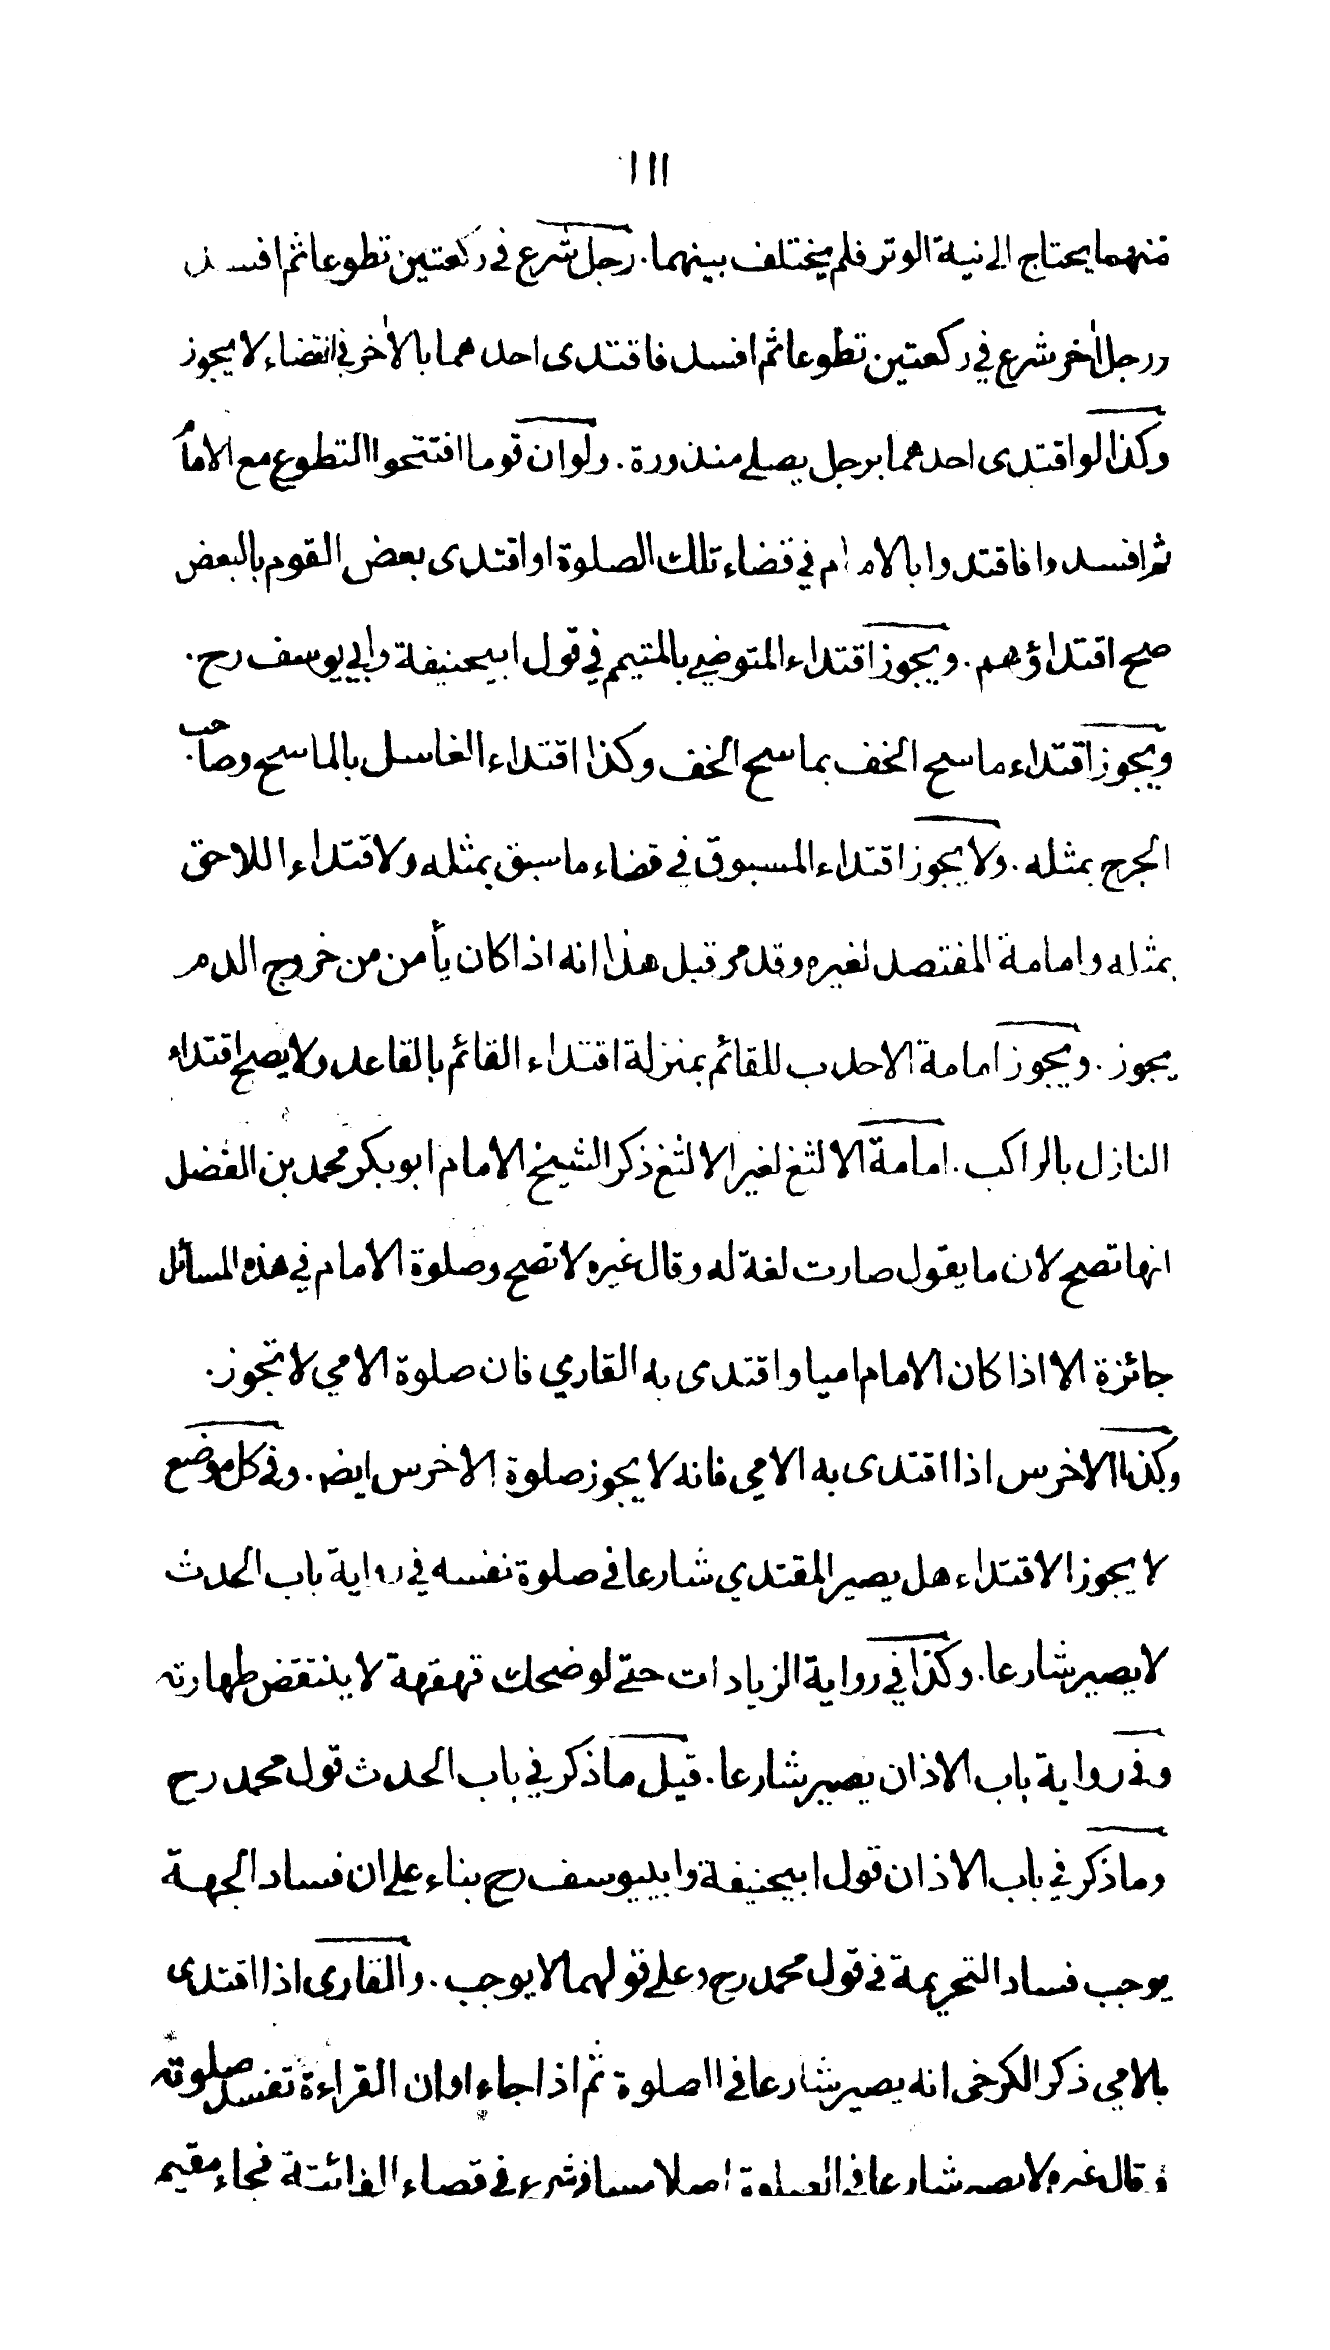 ١١١
منهما يحتاج الى نية الوتر فلم يختلف بينهما. رجل شرع في ركعتين تطوعا ثم افسد
ورجل اٰخر شرع في ركعتين تطوعا ثم افسد فاقتدى احدهما بالاٰخر في القضاء لا يجوز
وكذا لو اقتدى احدهما برجل يصلي منذورة. ولو ان قوما افتتحوا التطوع مع الامام
ثم افسدوا فاقتدوا بالامام في قضاء تلك الصلوة او اقتدى بعض القوم بالبعض
صح اقتداؤهم. ويجوز اقتداء المتوضي بالمتيم في قول ابيحنيفة وابي يوسف رح.
ويجوز اقتداء ماسح الخف بماسح الخف وكذا اقتداء الغاسل بالماسح وصاحب
الجرح بمثله. ولا يجوز اقتداء المسبوق في قضاء ما سبق بمثله ولا قتداء اللاحق
بمثله وامامة المفتصد لغيره وقد مر قبل هذا انه اذا كان يأمن من خروج الدم
يجوز. ويجوز امامة الاحدب للقائم بمنزلة اقتداء القائم بالقاعد ولا يصح اقتداء
النازل بالراكب. امامة الالثغ لغير الالثغ ذكر الشيخ الامام ابو بكر محمد بن الفضل
انها تصح لان ما يقول صارت لغة له وقال غيره لا تصح وصلوة الامام في هذه المسائل
جائزة الا اذا كان الامام اميا واقتدى به القاري فان صلوة الامي لا تجوز.
وكذا الاخرس اذا اقتدى به الامي فانه لا يجوز صلوة الاخرس ايضا. وفي كل موضع
لا يجوز الاقتداء هل يصير المقتدي شارعا في صلوة نفسه في رواية باب الحدث
لا يصير شارعا. وكذا في رواية الزيادات حتى لو ضحك قهقهة لا ينتقض طهارته
وفي رواية باب الاذان يصير شارعا. قيل ما ذكر في باب الحدث قول محمد رح
وما ذكر في باب الاذان قول ابيحنيفة وابييوسف رح بناء على ان فساد الجهة
يوجب فساد التحريمة في قول محمد رح وعلى قولهما لا يوجب. والقارى اذا اقتدى
بالامي ذكر الكرخى انه يصير شارعا في الصلوة ثم اذا جاء اوان القراءة تفسد صلوته
وقال غيره لا يصير شارعا في الصلوة اصلا مسافر شرع في قضاء الفائتة فجاء مقيم